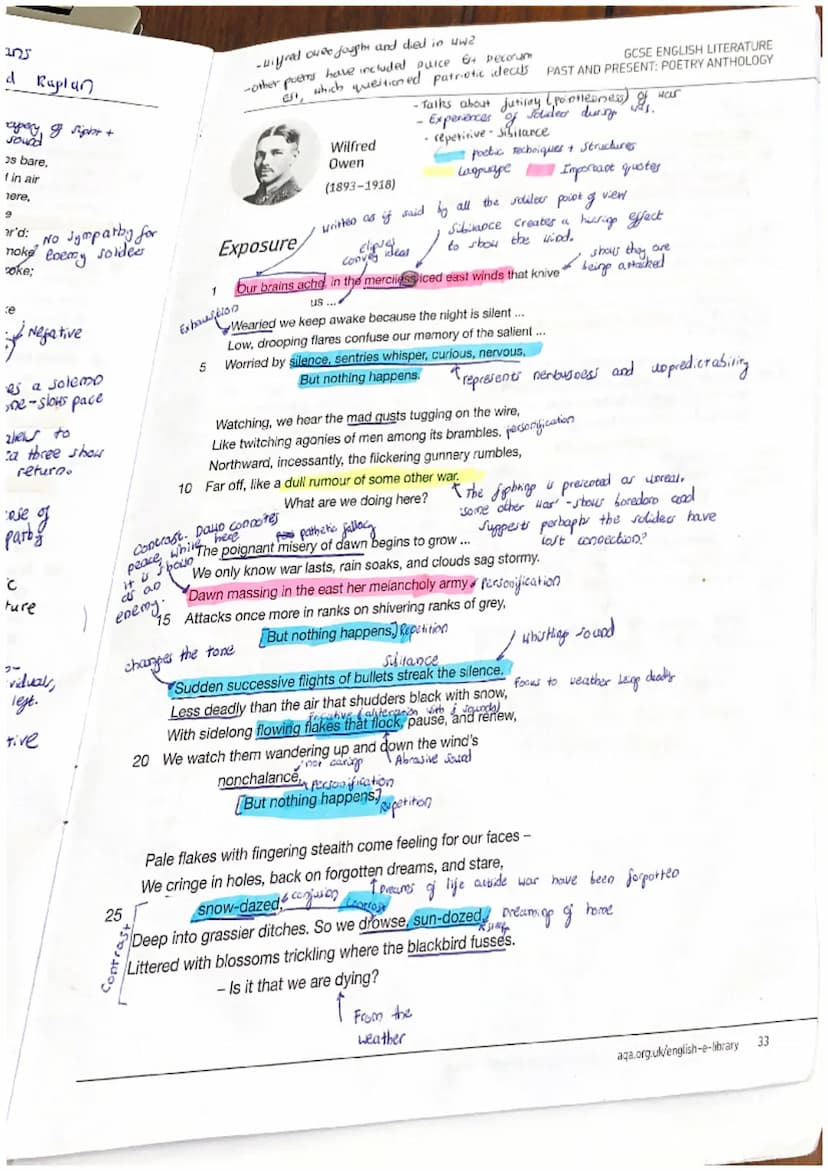 ans
d Kaplan
& sight +
sound
os bare,
f in air
here,
e
ar'd:
moke
oke;
No sympathy for
enemy soldiers
Negative
es a solemn
one-slows pace
to
ca three show
return.
ose of
part of
ture
viduals,
left.
tive
- Wilfred owen fought and died in WW2
- other poems have included Dulce Et Decorum
est, which questioned patriotic ideals
GCSE ENGLISH LITERATURE
PAST AND PRESENT: POETRY ANTHOLOGY
- Talks about futility (pointlessness) of war
- Experiences of soldiers during war.
- repetitive - Sibilance
Poetic techniques + structures
Language
Important quotes
Wilfred
Owen
(1893–1918)
written as if said by all the soldiers point of view
Sibilance creates a hissing effect
to show the wind.
convey ideas
shows they are
being attacked
Exposure
1 Our brains ache, in the merciless iced east winds that knive
us ...
Exhaustion
Wearied we keep awake because the night is silent ...
Low, drooping flares confuse our memory of the salient ...
5 Worried by silence, sentries whisper, curious, nervous,
But nothing happens.
represents nervousness and unpredictability
Watching, we hear the mad gusts tugging on the wire,
Like twitching agonies of men among its brambles.
personification
Northward, incessantly, the flickering gunnery rumbles,
10 Far off, like a dull rumour of some other war.
What are we doing here?
The fighting is presented as unreal,
some other war - shows boredom and
suggests perhaphs the soldiers have
lost connection?
Contrast. Dawn connotes
peace while here
it is shown
as an
enemy.
pathetic fallacy
The poignant misery of dawn begins to grow ...
We only know war lasts, rain soaks, and clouds sag stormy.
Dawn massing in the east her melancholy army
Personification
15 Attacks once more in ranks on shivering ranks of grey,
[But nothing happens.] Repetition
changes the tone
Sibilance
Whistling sound
Sudden successive flights of bullets streak the silence.
Less deadly than the air that shudders black with snow,
Focus to weather being deadly
With sidelong flowing flakes that flock, pause, and renew,
20 We watch them wandering up and down the wind's
not caring
Abrasive sound
nonchalance,
personification
[But nothing happens.]
Repetition
Pale flakes with fingering stealth come feeling for our faces –
We cringe in holes, back on forgotten dreams, and stare,
Dreams of life outside war have been forgotten
25 snow-dazed,
confusion
Contrast
Deep into grassier ditches. So we drowse, sun-dozed,
Dreaming of home
Littered with blossoms trickling where the blackbird fusses.
Contrast
– Is it that we are dying?
From the
weather
aqa.org.uk/english-e-library 33